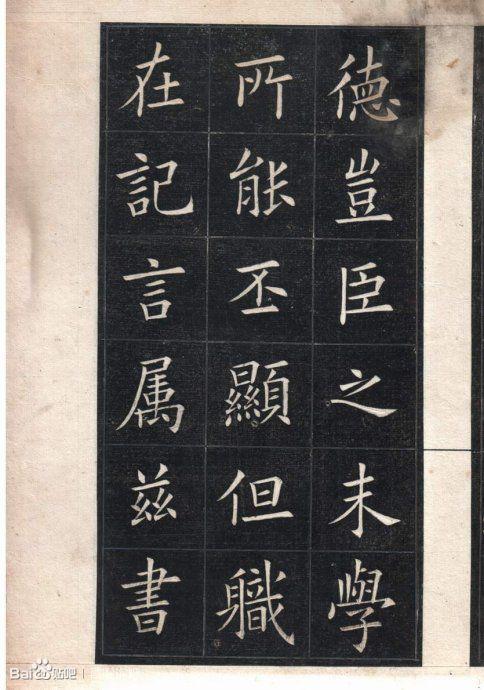 德豈臣之末學
所能丕顯但職
在記言属兹書
Bai贴吧